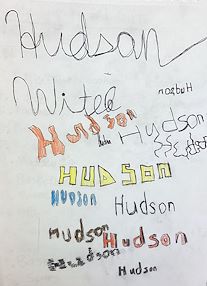 Hudson
Witée
Hudson
Hudson
Hudson
HUDSON
HUDSON
Hudson
Hudson
Hudson
Hudson
Hudson